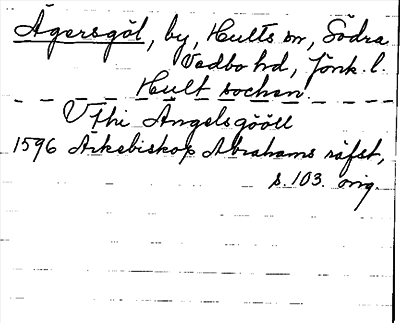 Ägersgöl, by, Hults sn, Södra
Vedbo hd, Jönk. l.
Hult socken.
Vthi Ängelsgööll
1596 Ärkebiskop Abrahams räfst,
s. 103. orig.